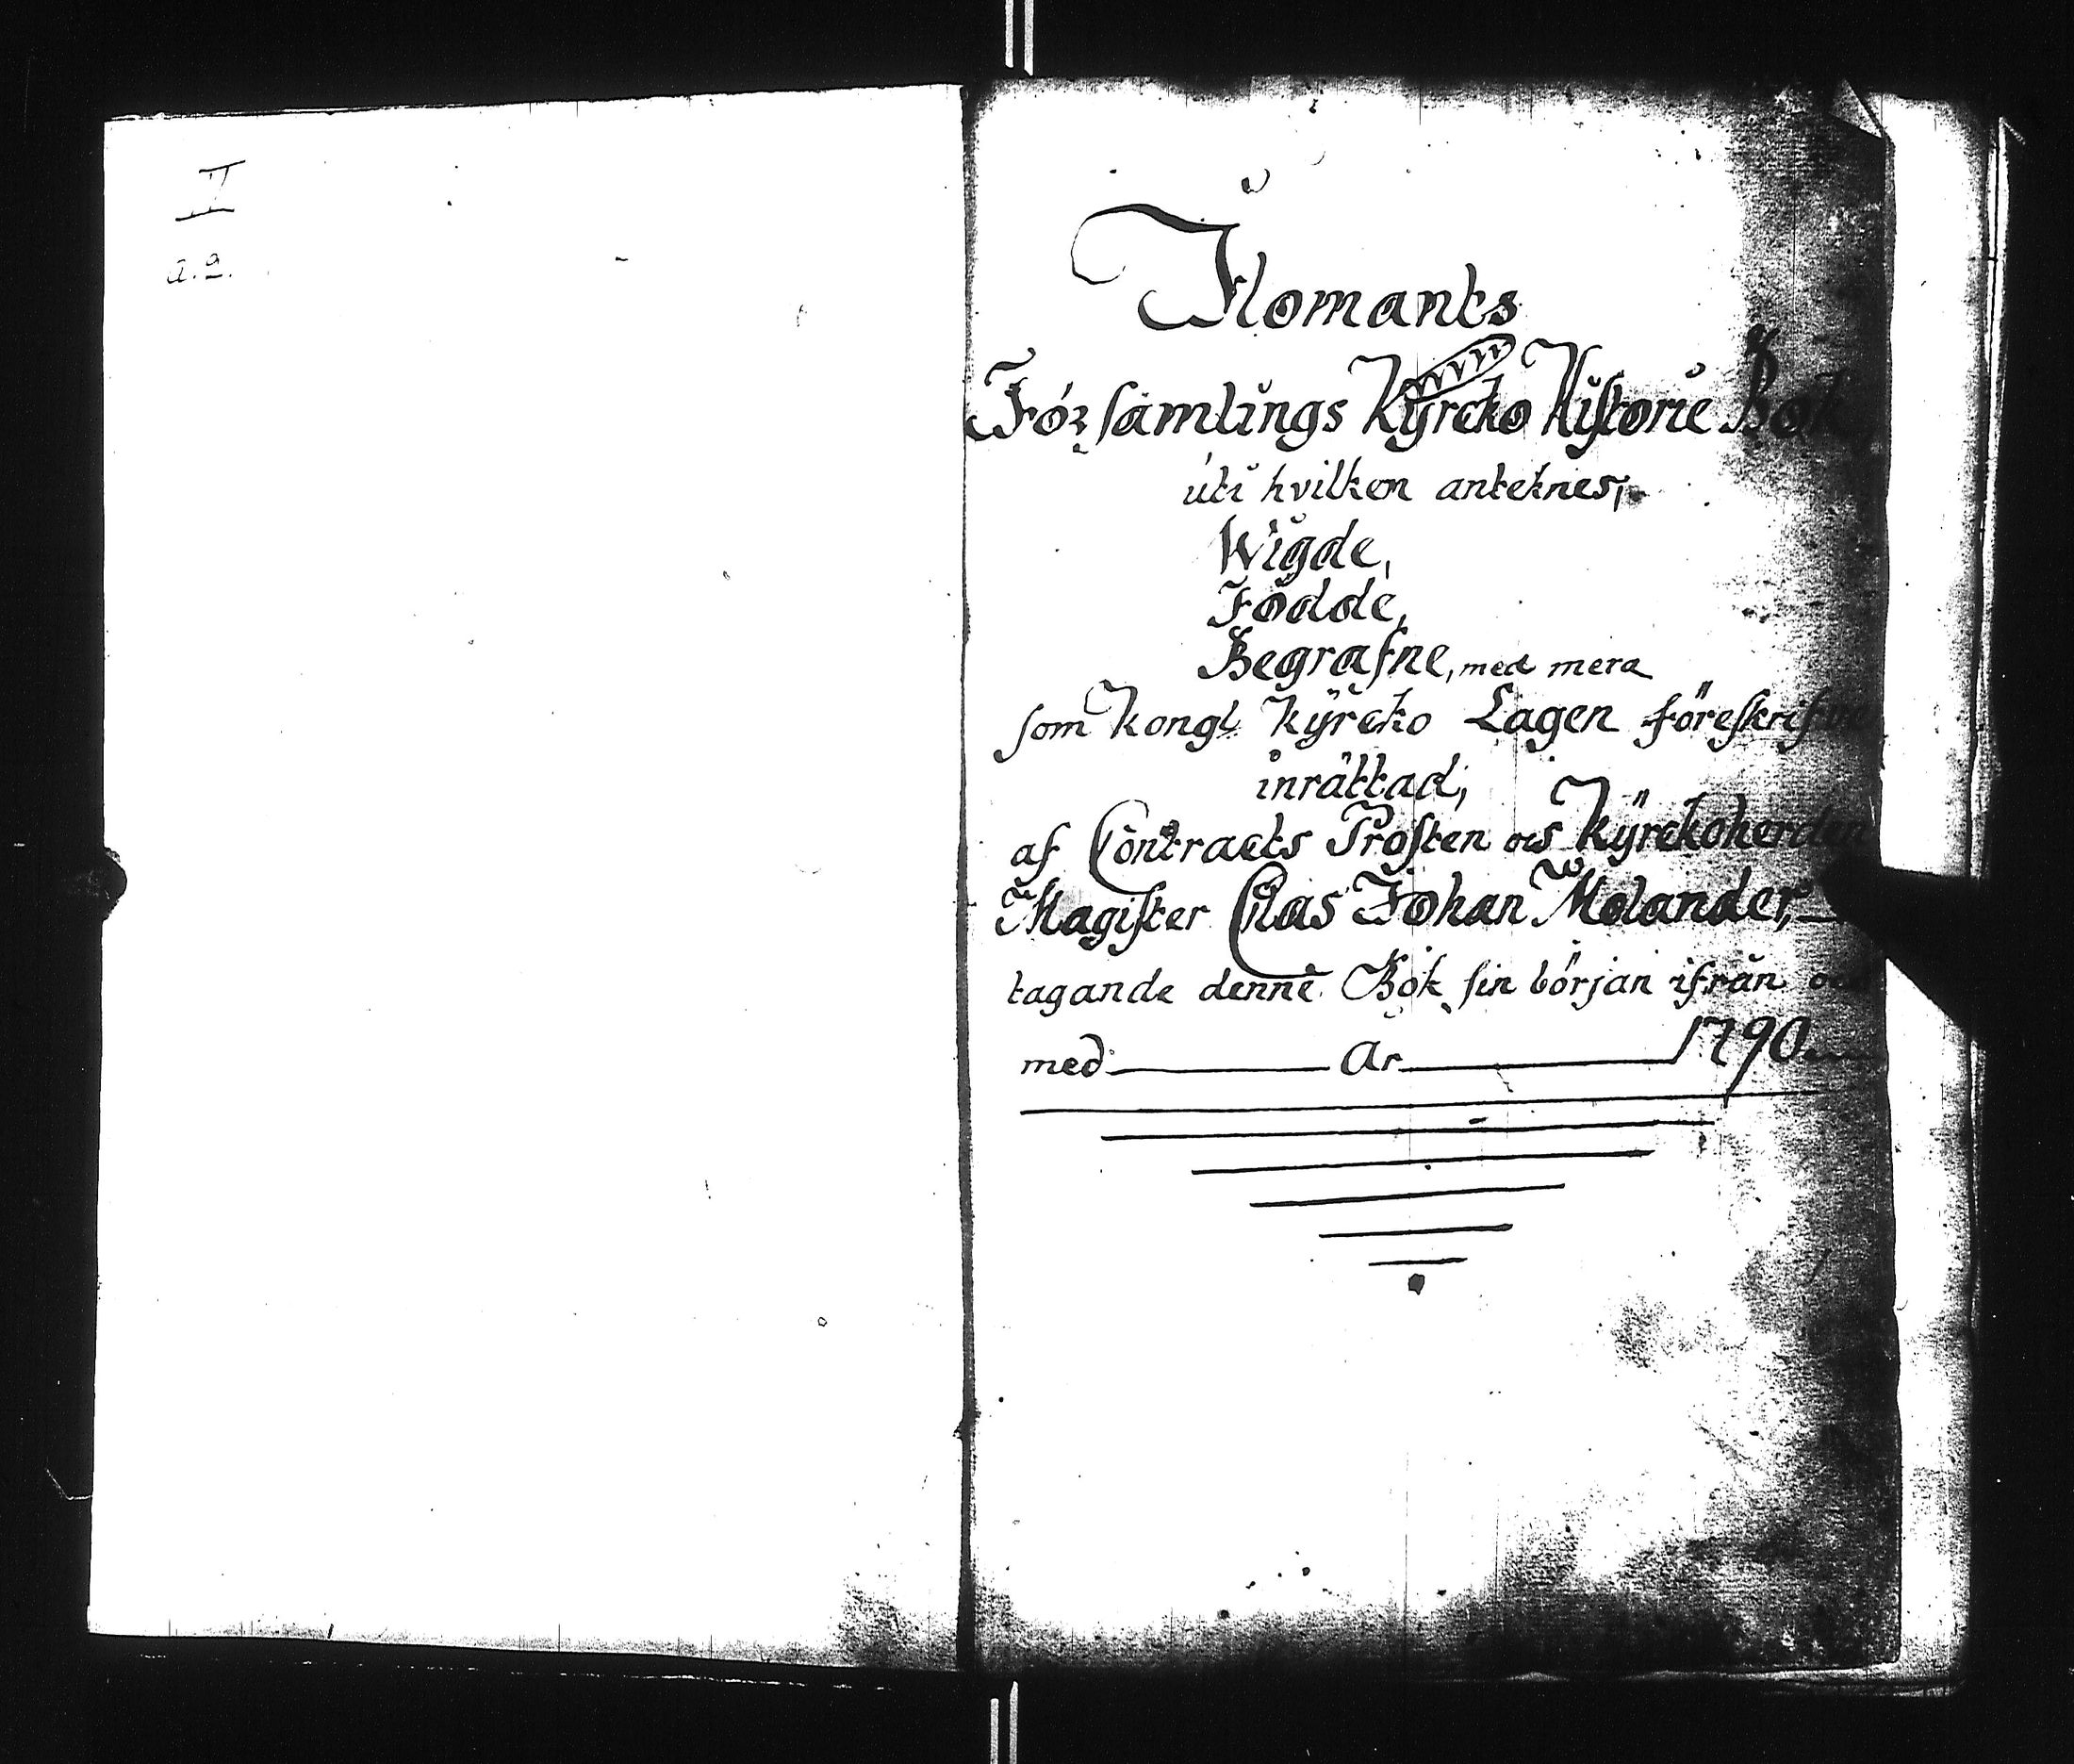 II
a.2.
Ilomants
Församlings Kÿrcko Historie Bok
uti hvilken anteknes,
Wigde,
Födde,
Begrafne, med mera
som Kongl Kÿrcko Lagen föreskrifver
inrättad;
af Contracts Prosten och Kÿrckoherden
Magister Clas Johan Molander,
tagande denne Bok sin början ifrån och
med År 1790